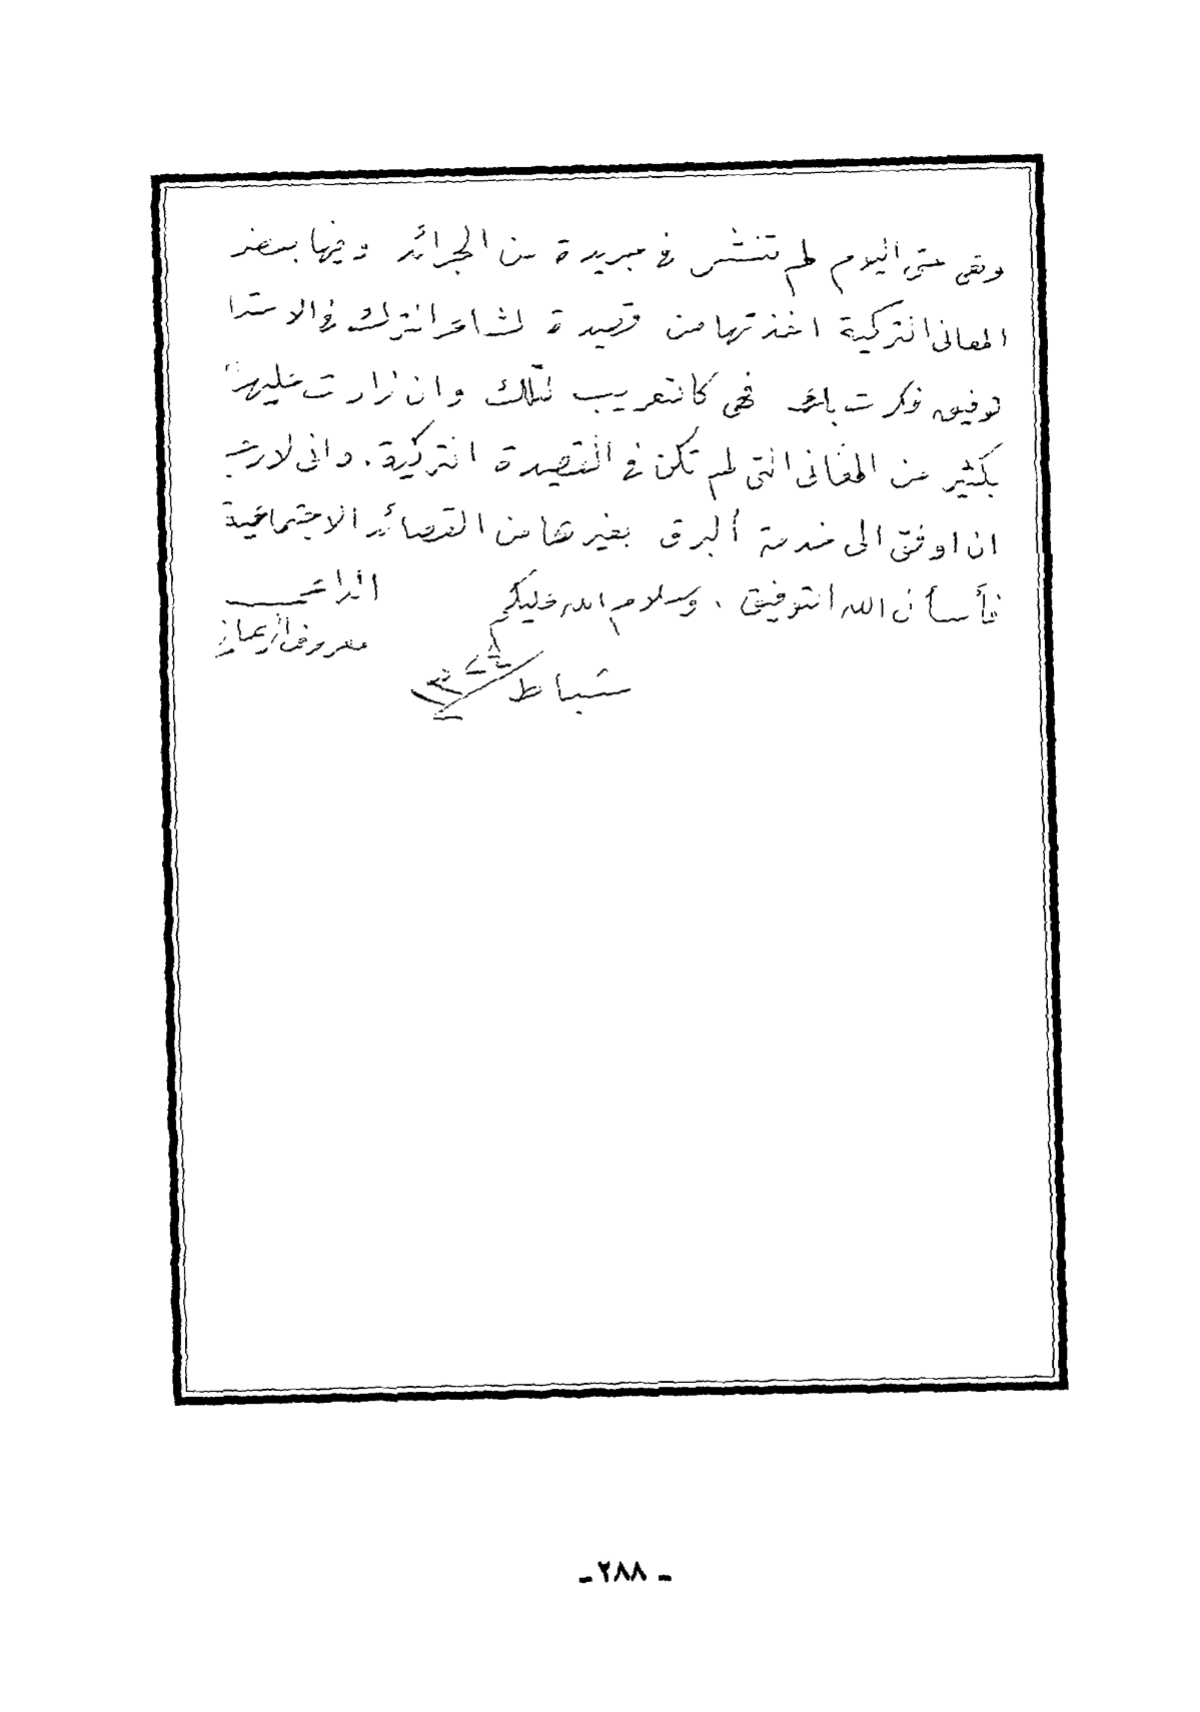 وهي حتى اليوم لم تنشر في جريدة من الجرائد وفيها بعض
المعاني التركية اخذتها من قصيدة لشاعر الترك في الاستا
توفيق فكرت بك فهي كالتعريب لتلك وان زادت عليها
بكثير من المعاني التي لم تكن في القصيدة التركية. واني لارغب
ان اوفق الى خدمة البرق بغيرها من القصائد الاجتماعية
فأسأل الله التوفيق. وسلام الله عليكم
الداعي
معروف الرصافي
شباط
ـ ٢٨٨ ـ